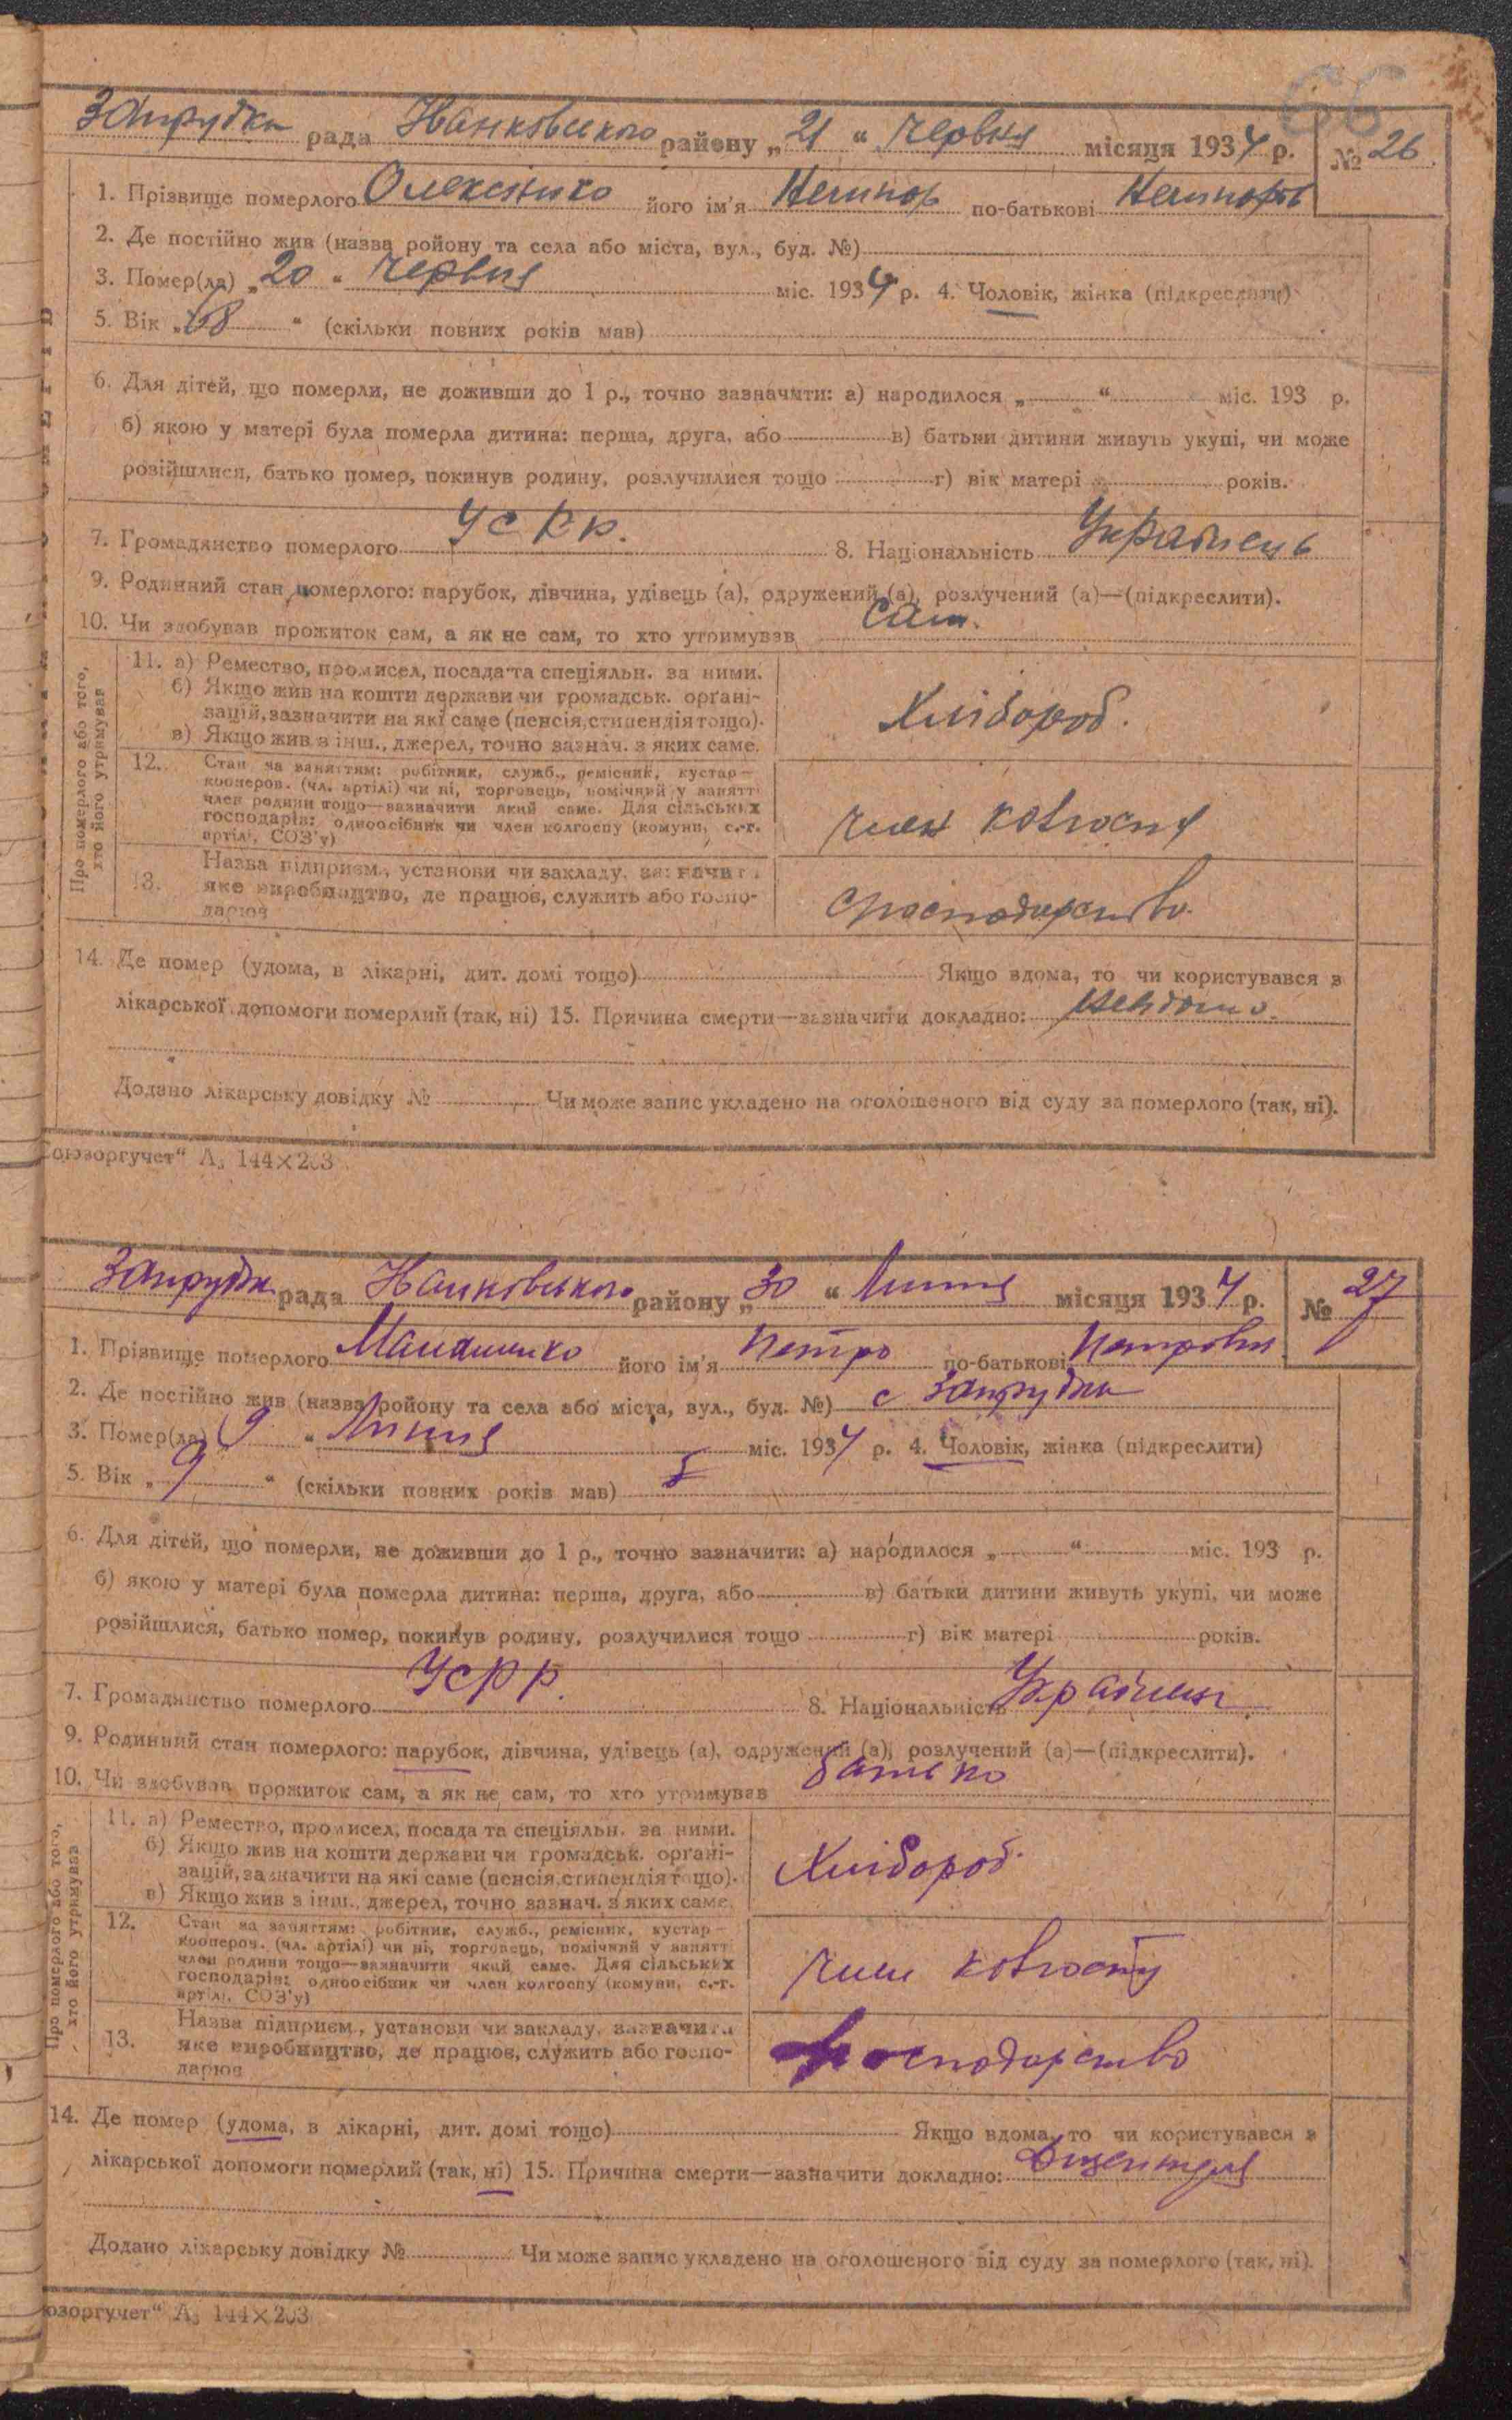 66
Запрудка рада Іванковського району „21“ червня місяця 1934 р. № 26
1. Прізвище померлого Олексієнко його ім'я Нечипор по-батькові
2. Де постійно жив (назва ройону та села або міста, вул., буд. №)
3. Помер(ла) „20“ червня міс. 1934 р. 4. Чоловік, жінка (підкреслити)
5. Вік „68“ (скільки повних років мав)
6. Для дітей, що померли, не доживши до 1 р., точно зазначити: а) народилося „ “ міс. 193 р.
б) якою у матері була померла дитина: перша, друга, або в) батьки дитини живуть укупі, чи може
розійшлися, батько помер, покинув родину, розлучилися тощо г) вік матері років.
7. Громадянство померлого УСРР. 8. Національність Українець
9. Родинний стан померлого: парубок, дівчина, удівець (а), одружений (а), розлучений (а)—(підкреслити).
10. Чи здобував прожиток сам, а як не сам, то хто утримував сам.
Про померлого або того, хто його утримував
11. а) Ремество, промисел, посада та спеціяльн. за ними.
б) Якщо жив на кошти держави чи громадськ. органі-
зацій, зазначити на які саме (пенсія, стипендія тощо).
в) Якщо жив з інш., джерел, точно зазнач. з яких саме.
Хлібороб.
12. Стан за заняттям: робітник, служб., ремісник, кустар—
кооперов. (чл. артілі) чи ні, торговець, помічний у занятті
член родини тощо—зазначити який саме. Для сільських
господарів: одноосібник чи член колгоспу (комуни, с.-г.
артілі, СОЗ'у)
член
13. Назва підприєм., установи чи закладу, зазначити
яке виробництво, де працює, служить або госпо-
дарює
14. Де помер (удома, в лікарні, дит. домі тощо) Якщо вдома, то чи користувався з
лікарської допомоги померлий (так, ні) 15. Причина смерти—зазначити докладно:
Додано лікарську довідку № Чи може запис укладено на оголошеного від суду за померлого (так, ні).
оюзоргучет“ А₅ 144×203
Запрудка рада Іванковського району „30“ Липня місяця 1934 р. № 27
1. Прізвище померлого його ім'я Петро по-батькові Петрович
2. Де постійно жив (назва ройону та села або міста, вул., буд. №) с Запрудка
3. Помер(ла) „9“ Липня міс. 1934 р. 4. Чоловік, жінка (підкреслити)
5. Вік „9“ (скільки повних років мав)
6. Для дітей, що померли, не доживши до 1 р., точно зазначити: а) народилося „ “ міс. 193 р.
б) якою у матері була померла дитина: перша, друга, або в) батьки дитини живуть укупі, чи може
розійшлися, батько помер, покинув родину, розлучилися тощо г) вік матері років.
7. Громадянство померлого УСРР. 8. Національність
9. Родинний стан померлого: парубок, дівчина, удівець (а), одружений (а), розлучений (а)—(підкреслити).
10. Чи здобував прожиток сам, а як не сам, то хто утримував батько
Про померлого або того, хто його утримував
11. а) Ремество, промисел, посада та спеціяльн. за ними.
б) Якщо жив на кошти держави чи громадськ. органі-
зацій, зазначити на які саме (пенсія, стипендія тощо).
в) Якщо жив з інш., джерел, точно зазнач. з яких саме.
Хлібороб.
12. Стан за заняттям: робітник, служб., ремісник, кустар—
коопероч. (чл. артілі) чи ні, торговець, помічний у занятті
член родини тощо—зазначити який саме. Для сільських
господарів: одноосібник чи член колгоспу (комуни, с.-г.
артілі, СОЗ'у)
член
13. Назва підприєм., установи чи закладу, зазначити
яке виробництво, де працює, служить або госпо-
дарює
господарство
14. Де помер (удома, в лікарні, дит. домі тощо) Якщо вдома, то чи користувався з
лікарської допомоги померлий (так, ні) 15. Причина смерти—зазначити докладно:
Додано лікарську довідку № Чи може запис укладено на оголошеного від суду за померлого (так, ні).
юзоргучет“ А₅ 144×203